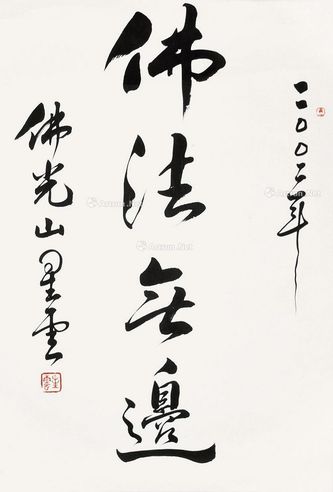 二〇〇二年
佛法無邊
佛光山星雲
星雲
Artron.Net
Artron.Net
Artron.Net